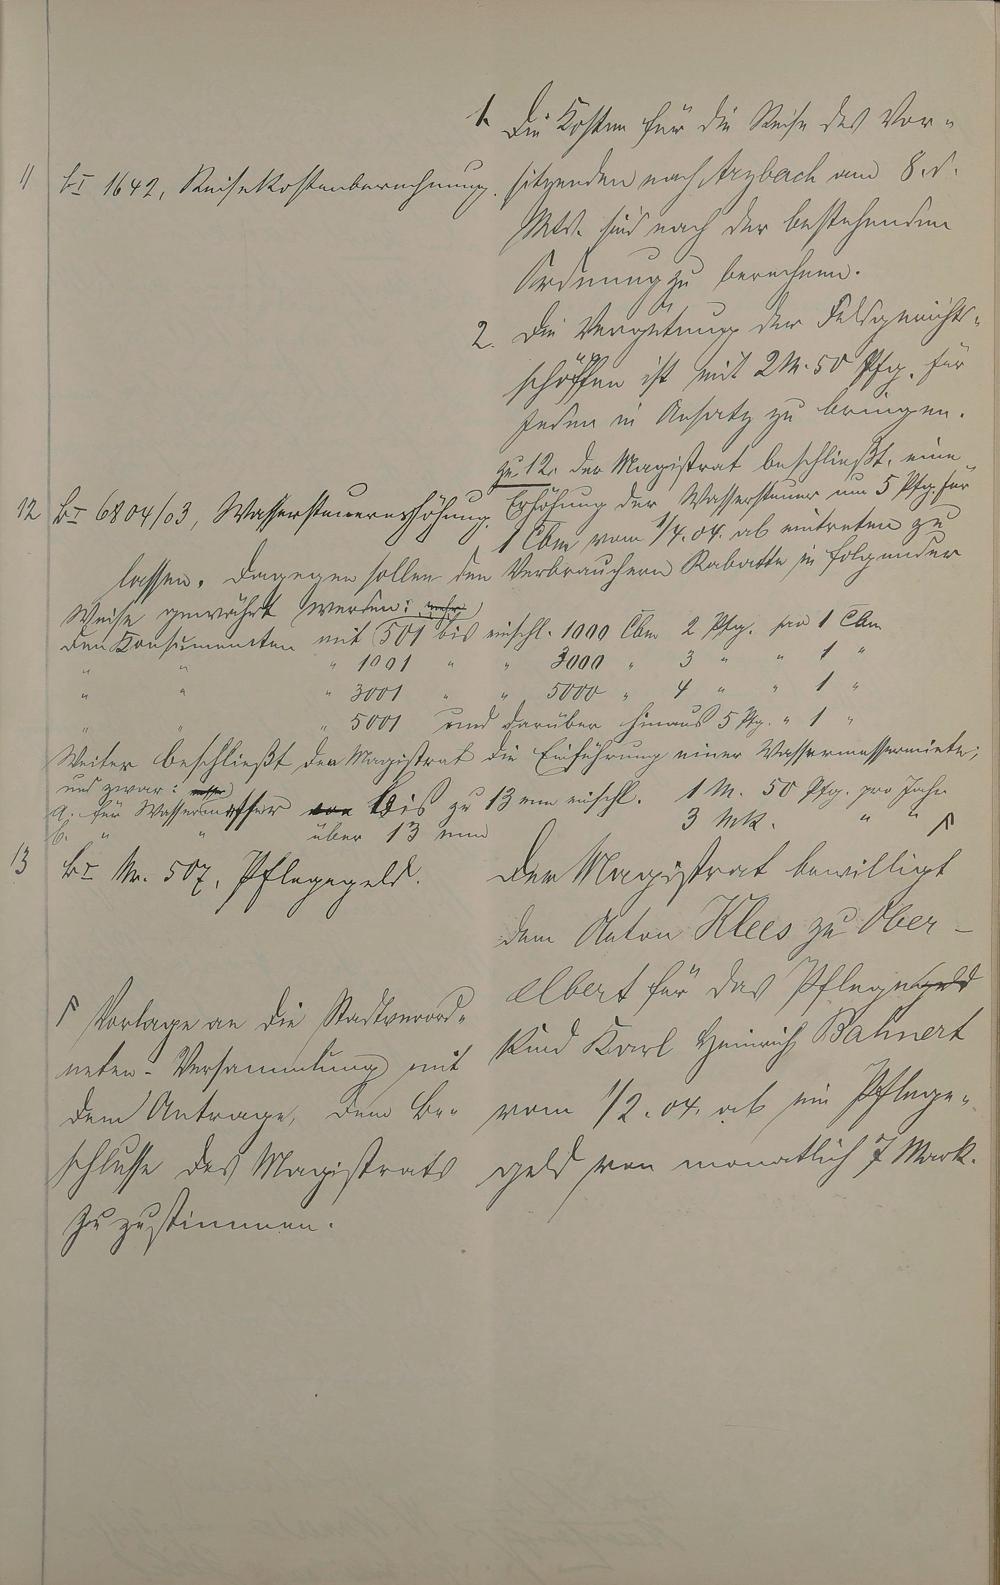 1. Die Kosten für die Reise des Vor-
11 b I 1642, Reisekostenberechnung.
sitzenden nach Arzbach am 8. d.
Mts. sind nach der bestehenden
Ordnung zu berechnen.
2. Die Vergütung der Feldgerichts-
schöffen ist mit 2 M. 50 Pfg. für
Jeden in Ansatz zu bringen.
zu 12. Der Magistrat beschließt, eine
12 B I 6804/03, Wassersteuererhöhung.
Erhöhung der Wassersteuer um 5 Pfg. für
1 Cbm vom 1/4. 04. ab eintreten zu
lassen. Dagegen sollen den Verbrauchern Rabatte in folgender
Weise gewährt werden:
den Konsumenten mit 501 bis einschl. 1000 Cbm 2 Pfg. pro 1 Cbm
" " " 1001 " " 3000 " 3 " " 1 "
" " " 3001 " " 5000 " 4 " " 1 "
" " " 5001 und darüber hinaus 5 Pfg. " 1 "
Weiter beschließt der Magistrat die Einführung einer Wassermessermiete;
und zwar:
a. für Wassermesser bis zu 13 mm einschl. 1 M. 50 Pfg. pro Jahr
b. " " über 13 mm 3 Mk. " "
13 b I Nr. 507, Pflegegeld.
Der Magistrat bewilligt
dem Anton Klees zu Ober-
elbert für das Pflege
Kind Karl Heinrich Bahnert
vom 1/2. 04. ab ein Pflege-
geld von monatlich 7 Mark.
Vorlage an die Stadtverord-
neten-Versammlung mit
dem Antrage, dem Be-
schlusse des Magistrats
zu zustimmen.